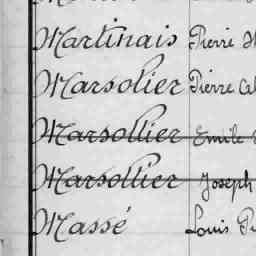 Martinais Pierre
Marsolier Pierre
Marsollier Emile
Marsollier Joseph
Massé Louis